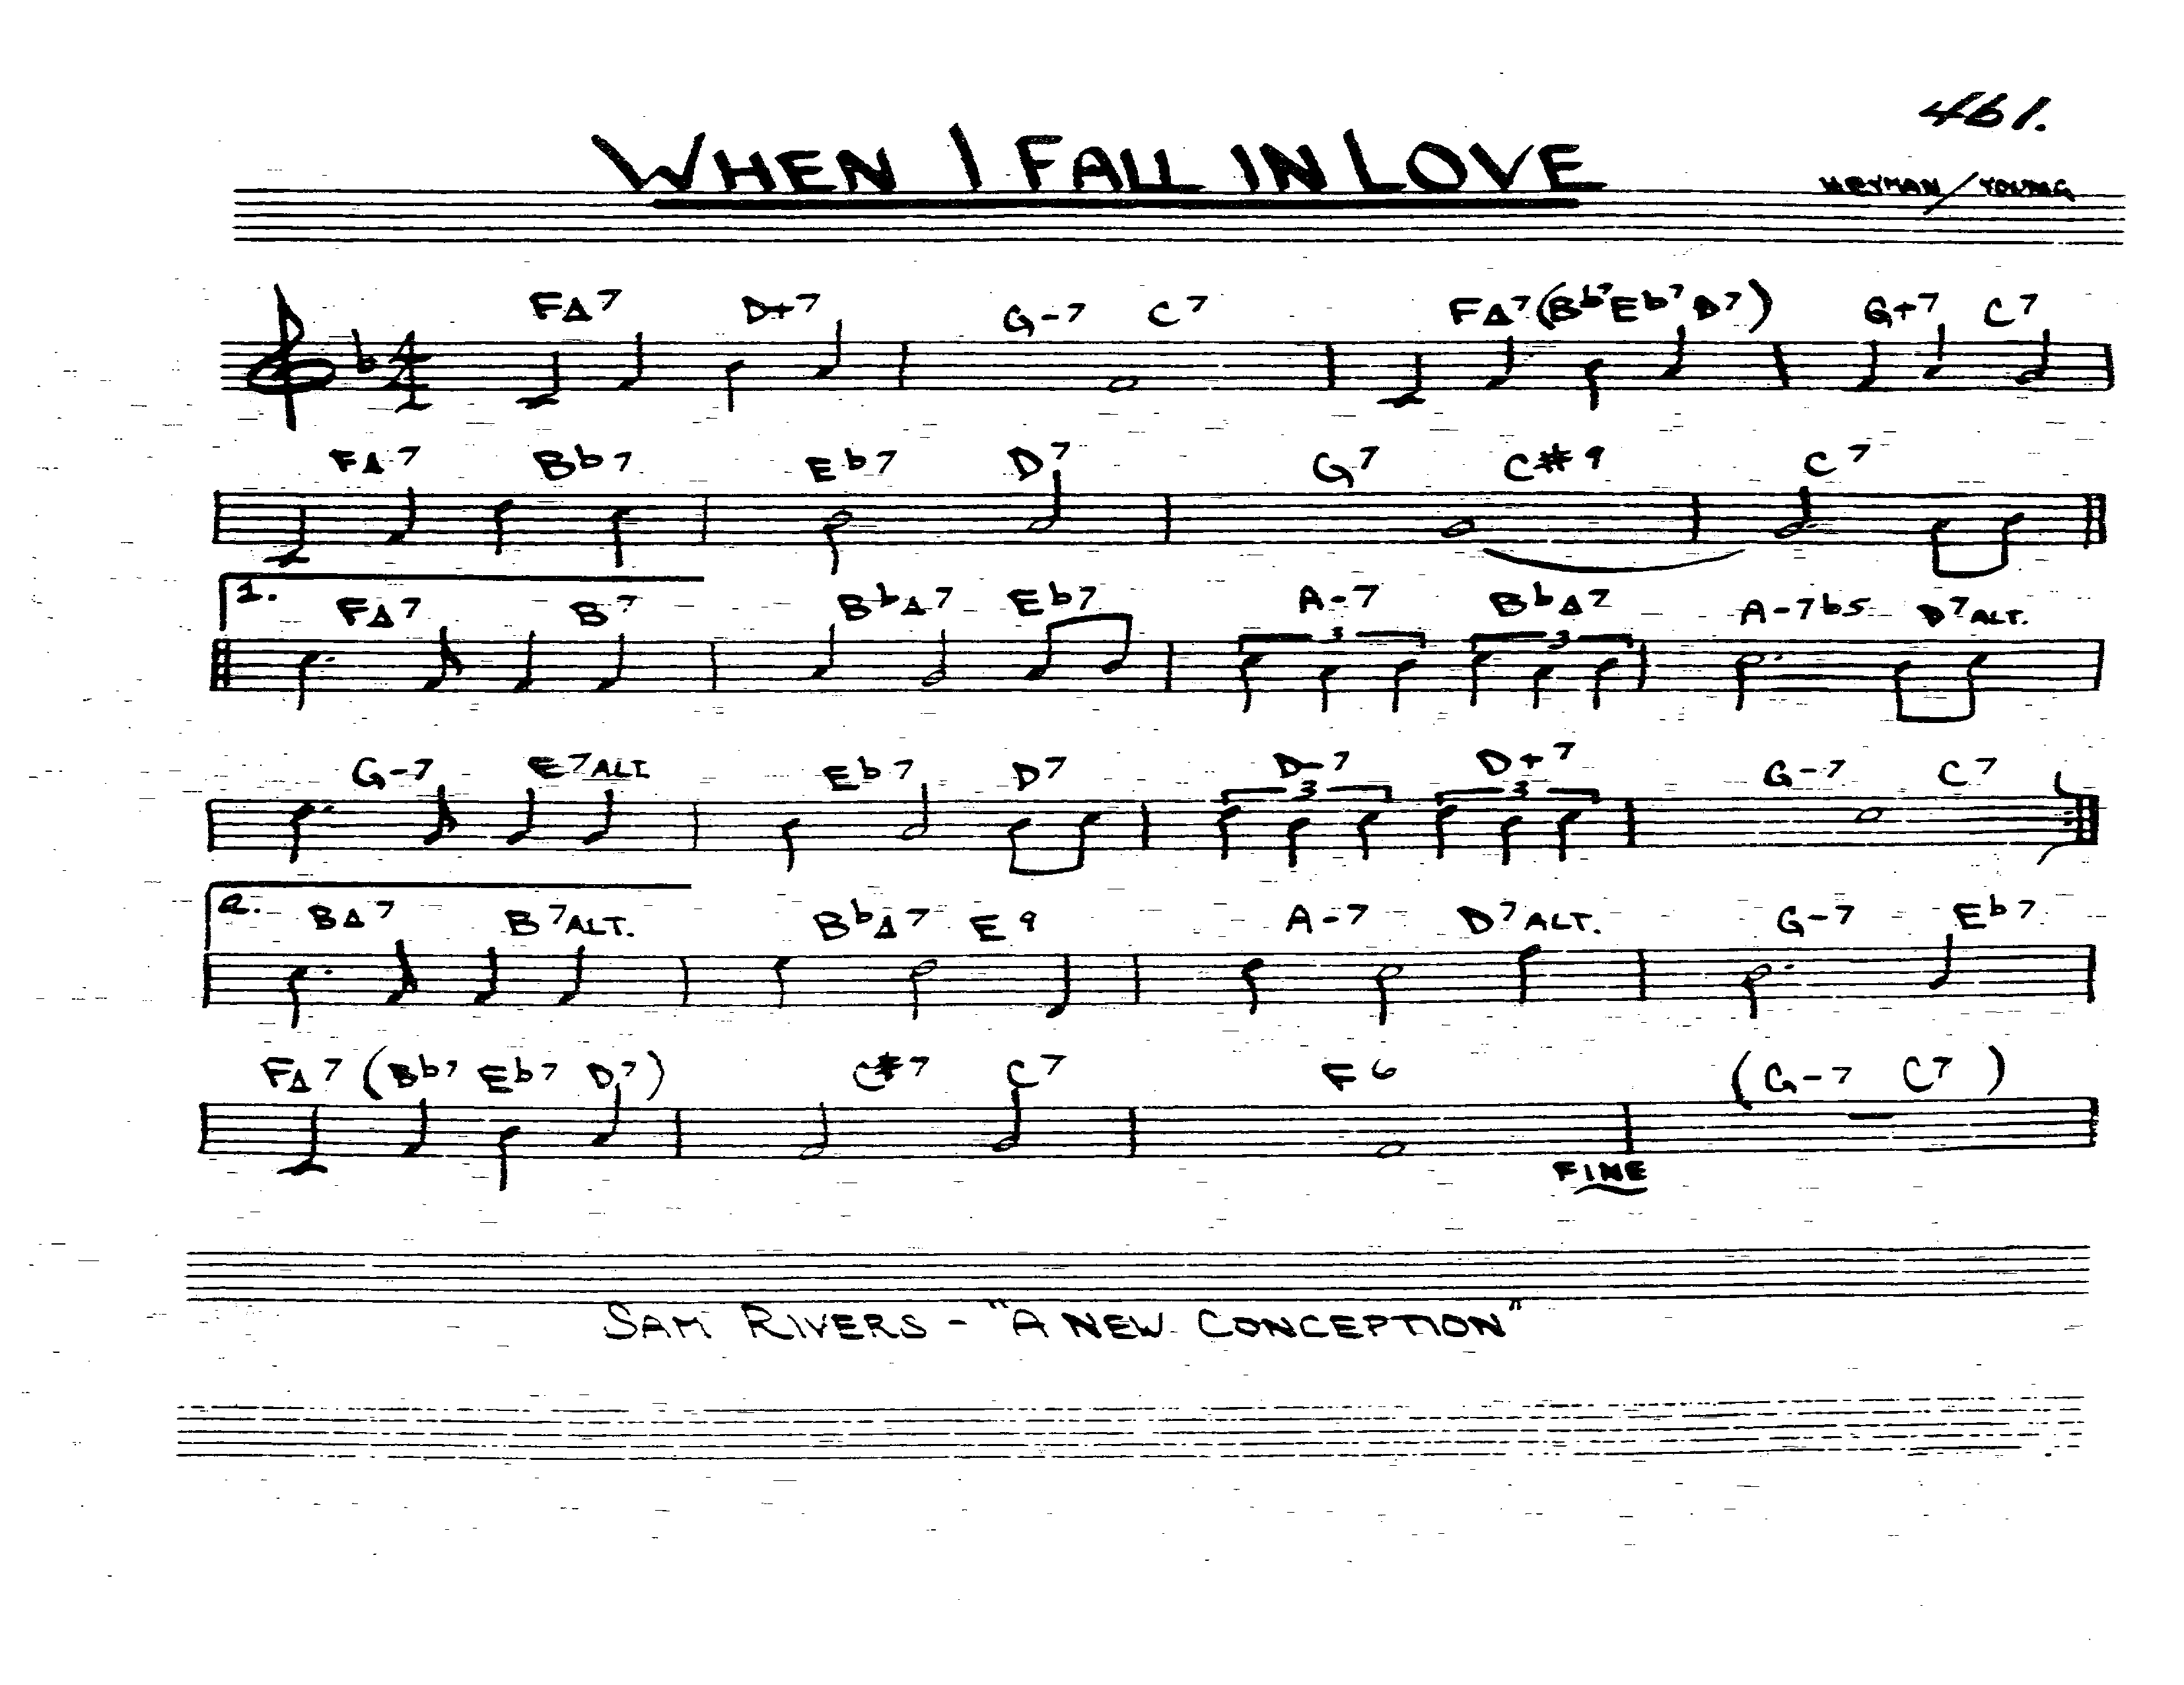 461.
WHEN I FALL IN LOVE
HEYMAN/YOUNG
F△7 D+7 G-7 C7 F△7 (Bb7 Eb7 D7) G+7 C7
F△7 Bb7 Eb7 D7 G7 C#9 C7
1. F△7 B7 Bb△7 Eb7 A-7 Bb△7 A-7b5 D7ALT.
3 3
G-7 E7ALT. Eb7 D7 D-7 D+7 G-7 C7
3 3
2. B△7 B7ALT. Bb△7 E9 A-7 D7ALT. G-7 Eb7
F△7 (Bb7 Eb7 D7) C#7 C7 F6 (G-7 C7)
FINE
SAM RIVERS - "A NEW CONCEPTION"